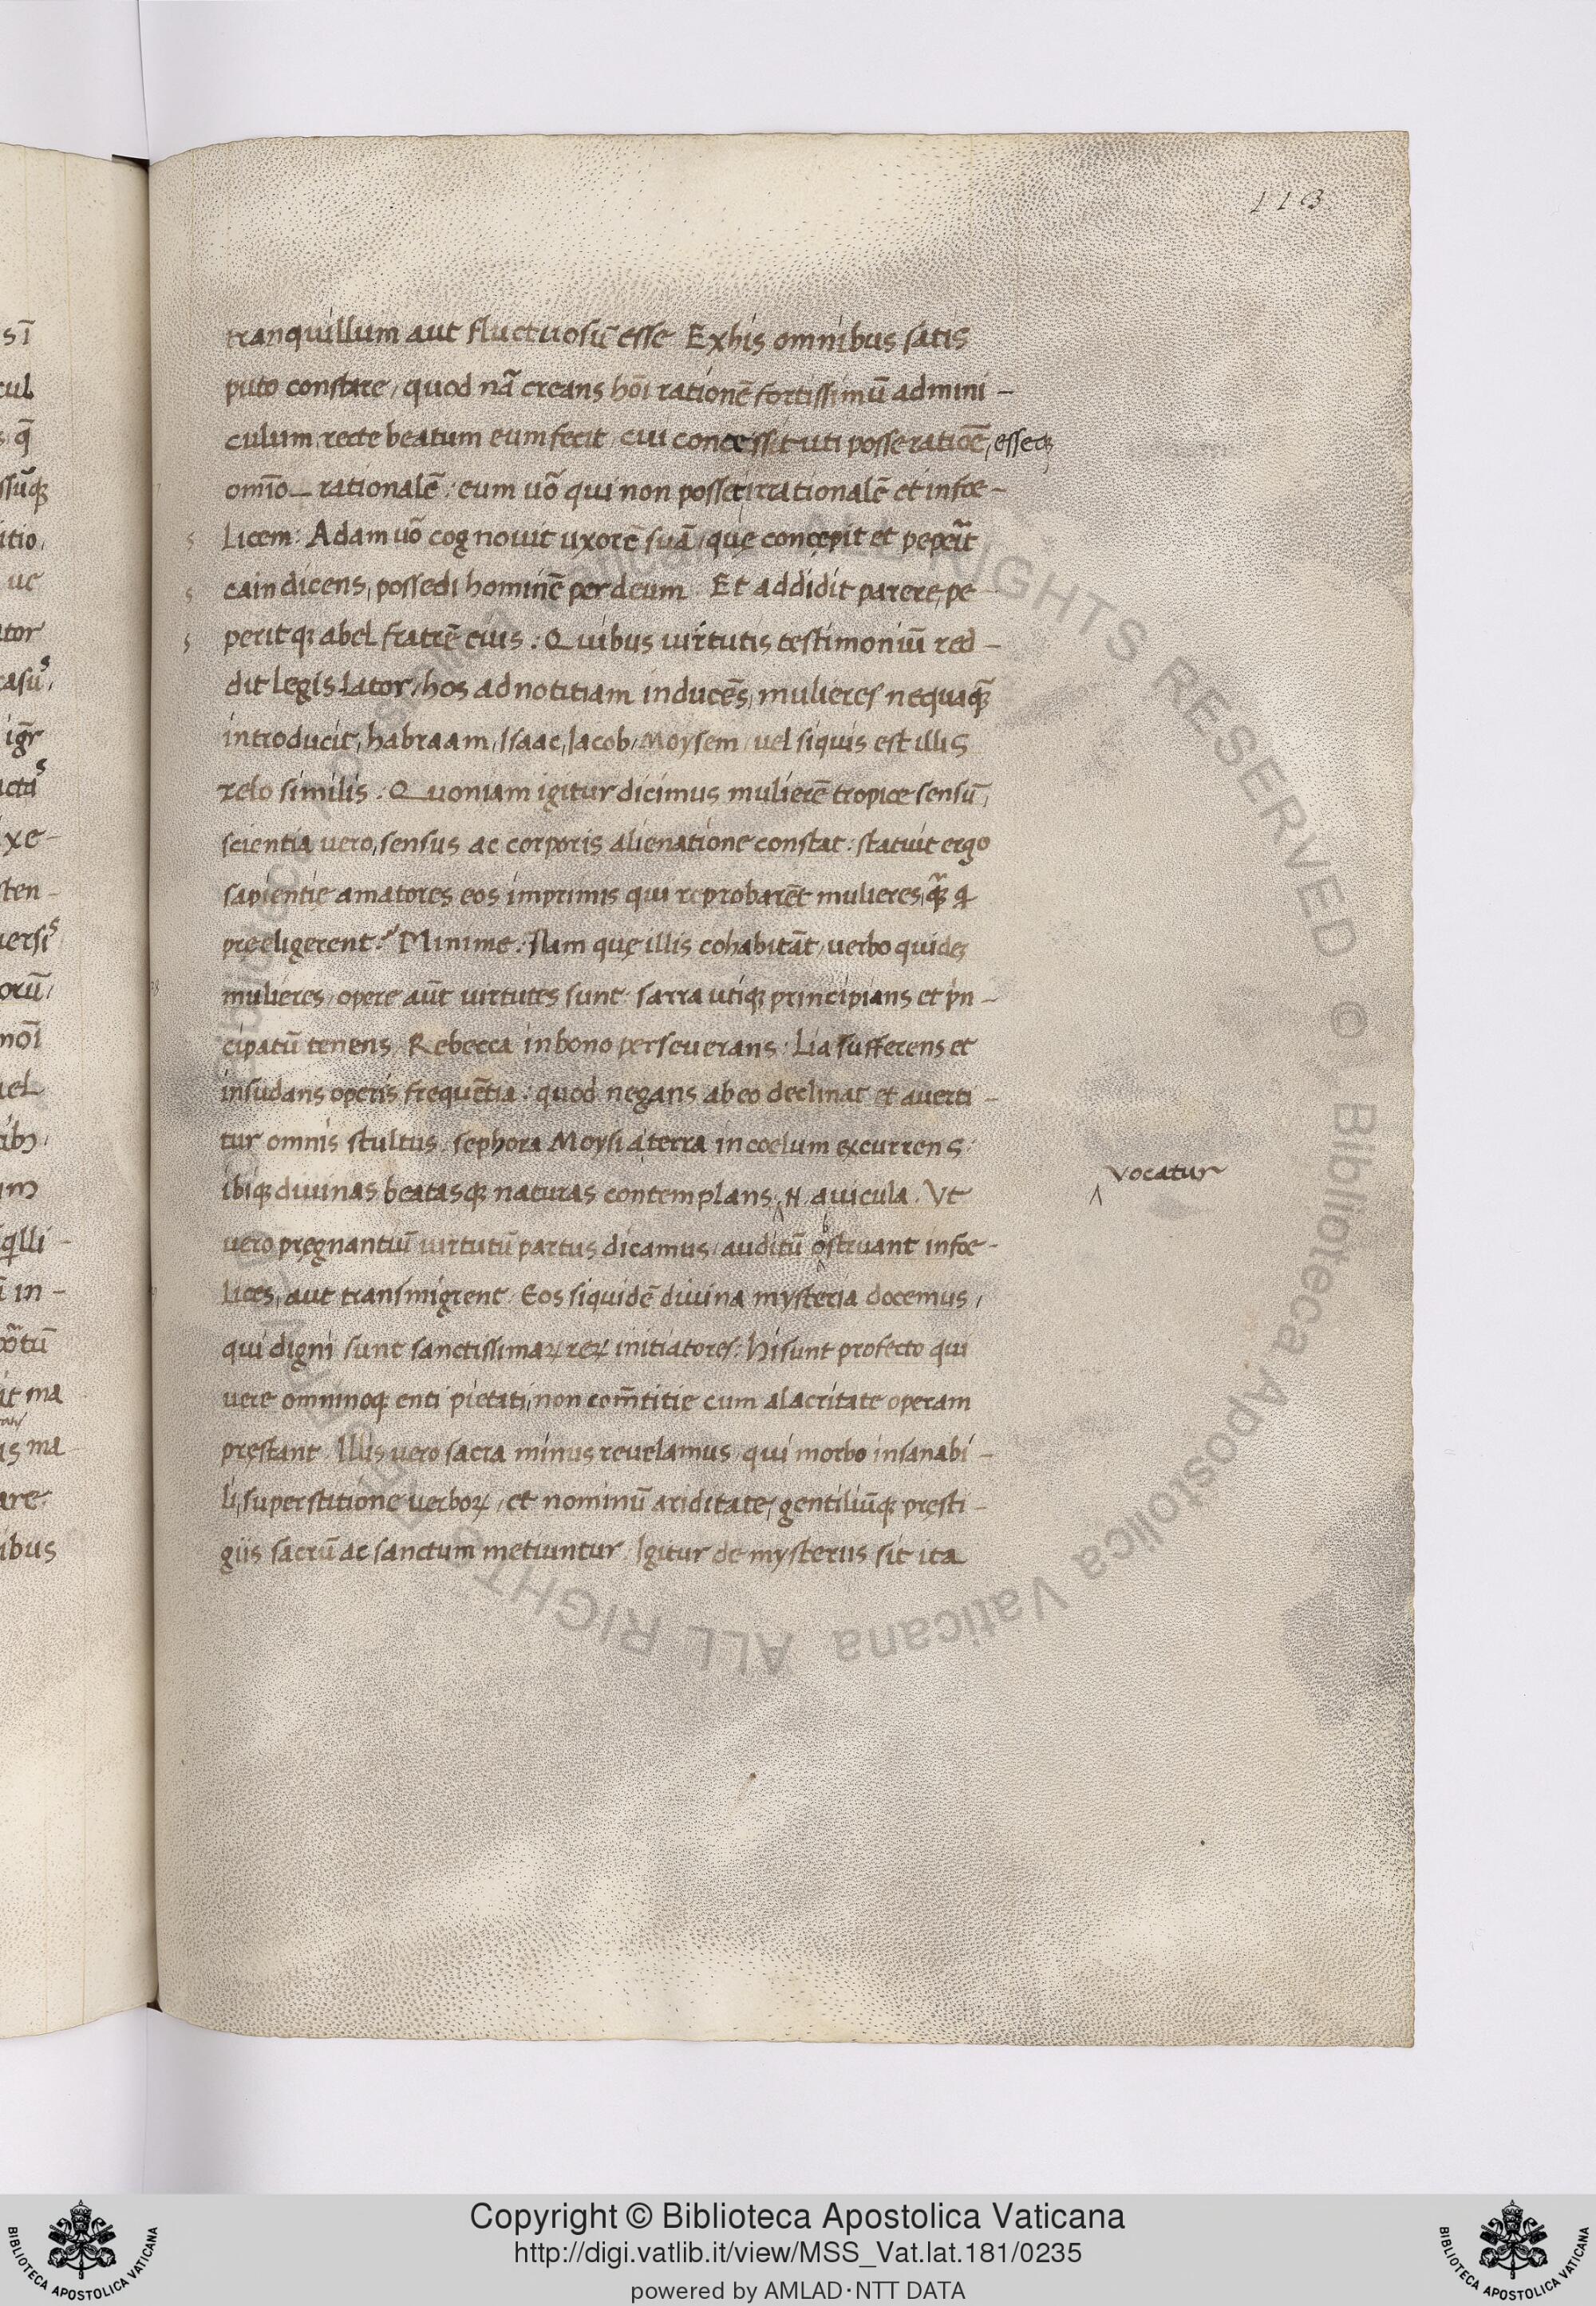 113
tranquillum aut fluctuosū esse Ex his omnibus satis
puto constare, quod nã creans hōi rationē fortissimū admini-
culum, recte beatum eum fecit, cui concessit uti posse ratiōē, esseqȝ
omĩo rationalē: eum uõ qui non posset, irrationalē et infoe-
licem: Adam uõ cognouit uxorē suā, quę concepit et pepeĩt
cain dicens, possedi hominē per deum. Et addidit parere, pe-
peritqȝ abel fratrē eius: Quibus uirtutis testimoniū red-
dit legis lator, hos ad notitiam inducēs, mulieres nequaqȝ̃
introducit, habraam, Isaac, Iacob, Moysem, uel siquis est illis
zelo similis. Quoniam igitur dicimus mulierē tropice sensū,
scientia uero, sensus ac corporis alienatione constat: statuit ergo
sapientię amatores eos imprimis qui reprobarēt mulieres, qȝ̃ q̃
pręeligerent? Minime. Nam quę illis cohabitāt, uerbo quideȝ
mulieres, opere aūt uirtutes sunt. sarra utiqȝ principians et pn-
cipatū tenens, Rebecca in bono perseuerans. Lia sufferens et
insudans operis frequētia: quod negans ab eo declinat et auerti-
tur omnis stultus. sephora Moysi a terra in coelum excurrens.
ibiqȝ diuinas beatasqȝ naturas contemplans, N. auicula. Vt
vocatur
uero pręgnantiū uirtutū partus dicamus, auditū obstruant infoe-
lices, aut transmigrent. Eos siquidē diuina mysteria docemus,
qui digni sunt sanctissimaꝝ reꝝ initiatores: hi sunt profecto qui
uere omninoqȝ enti pietati, non com̄titię cum alacritate operam
pręstant. Illis uero sacra minus reuelamus, qui morbo insanabi-
li, superstitione uerboꝝ, et nominū ariditate, gentiliūqȝ pręsti-
giis sacrū ac sanctum metiuntur. Igitur de mysteriis sit ita
Copyright © Biblioteca Apostolica Vaticana
http://digi.vatlib.it/view/MSS_Vat.lat.181/0235
powered by AMLAD·NTT DATA